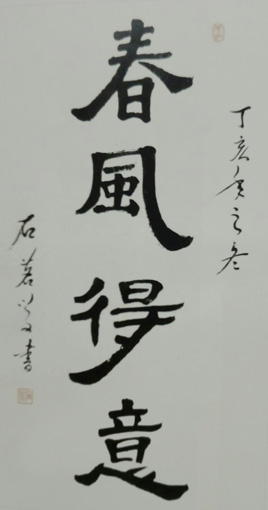 春風得意
丁亥之冬
石若書